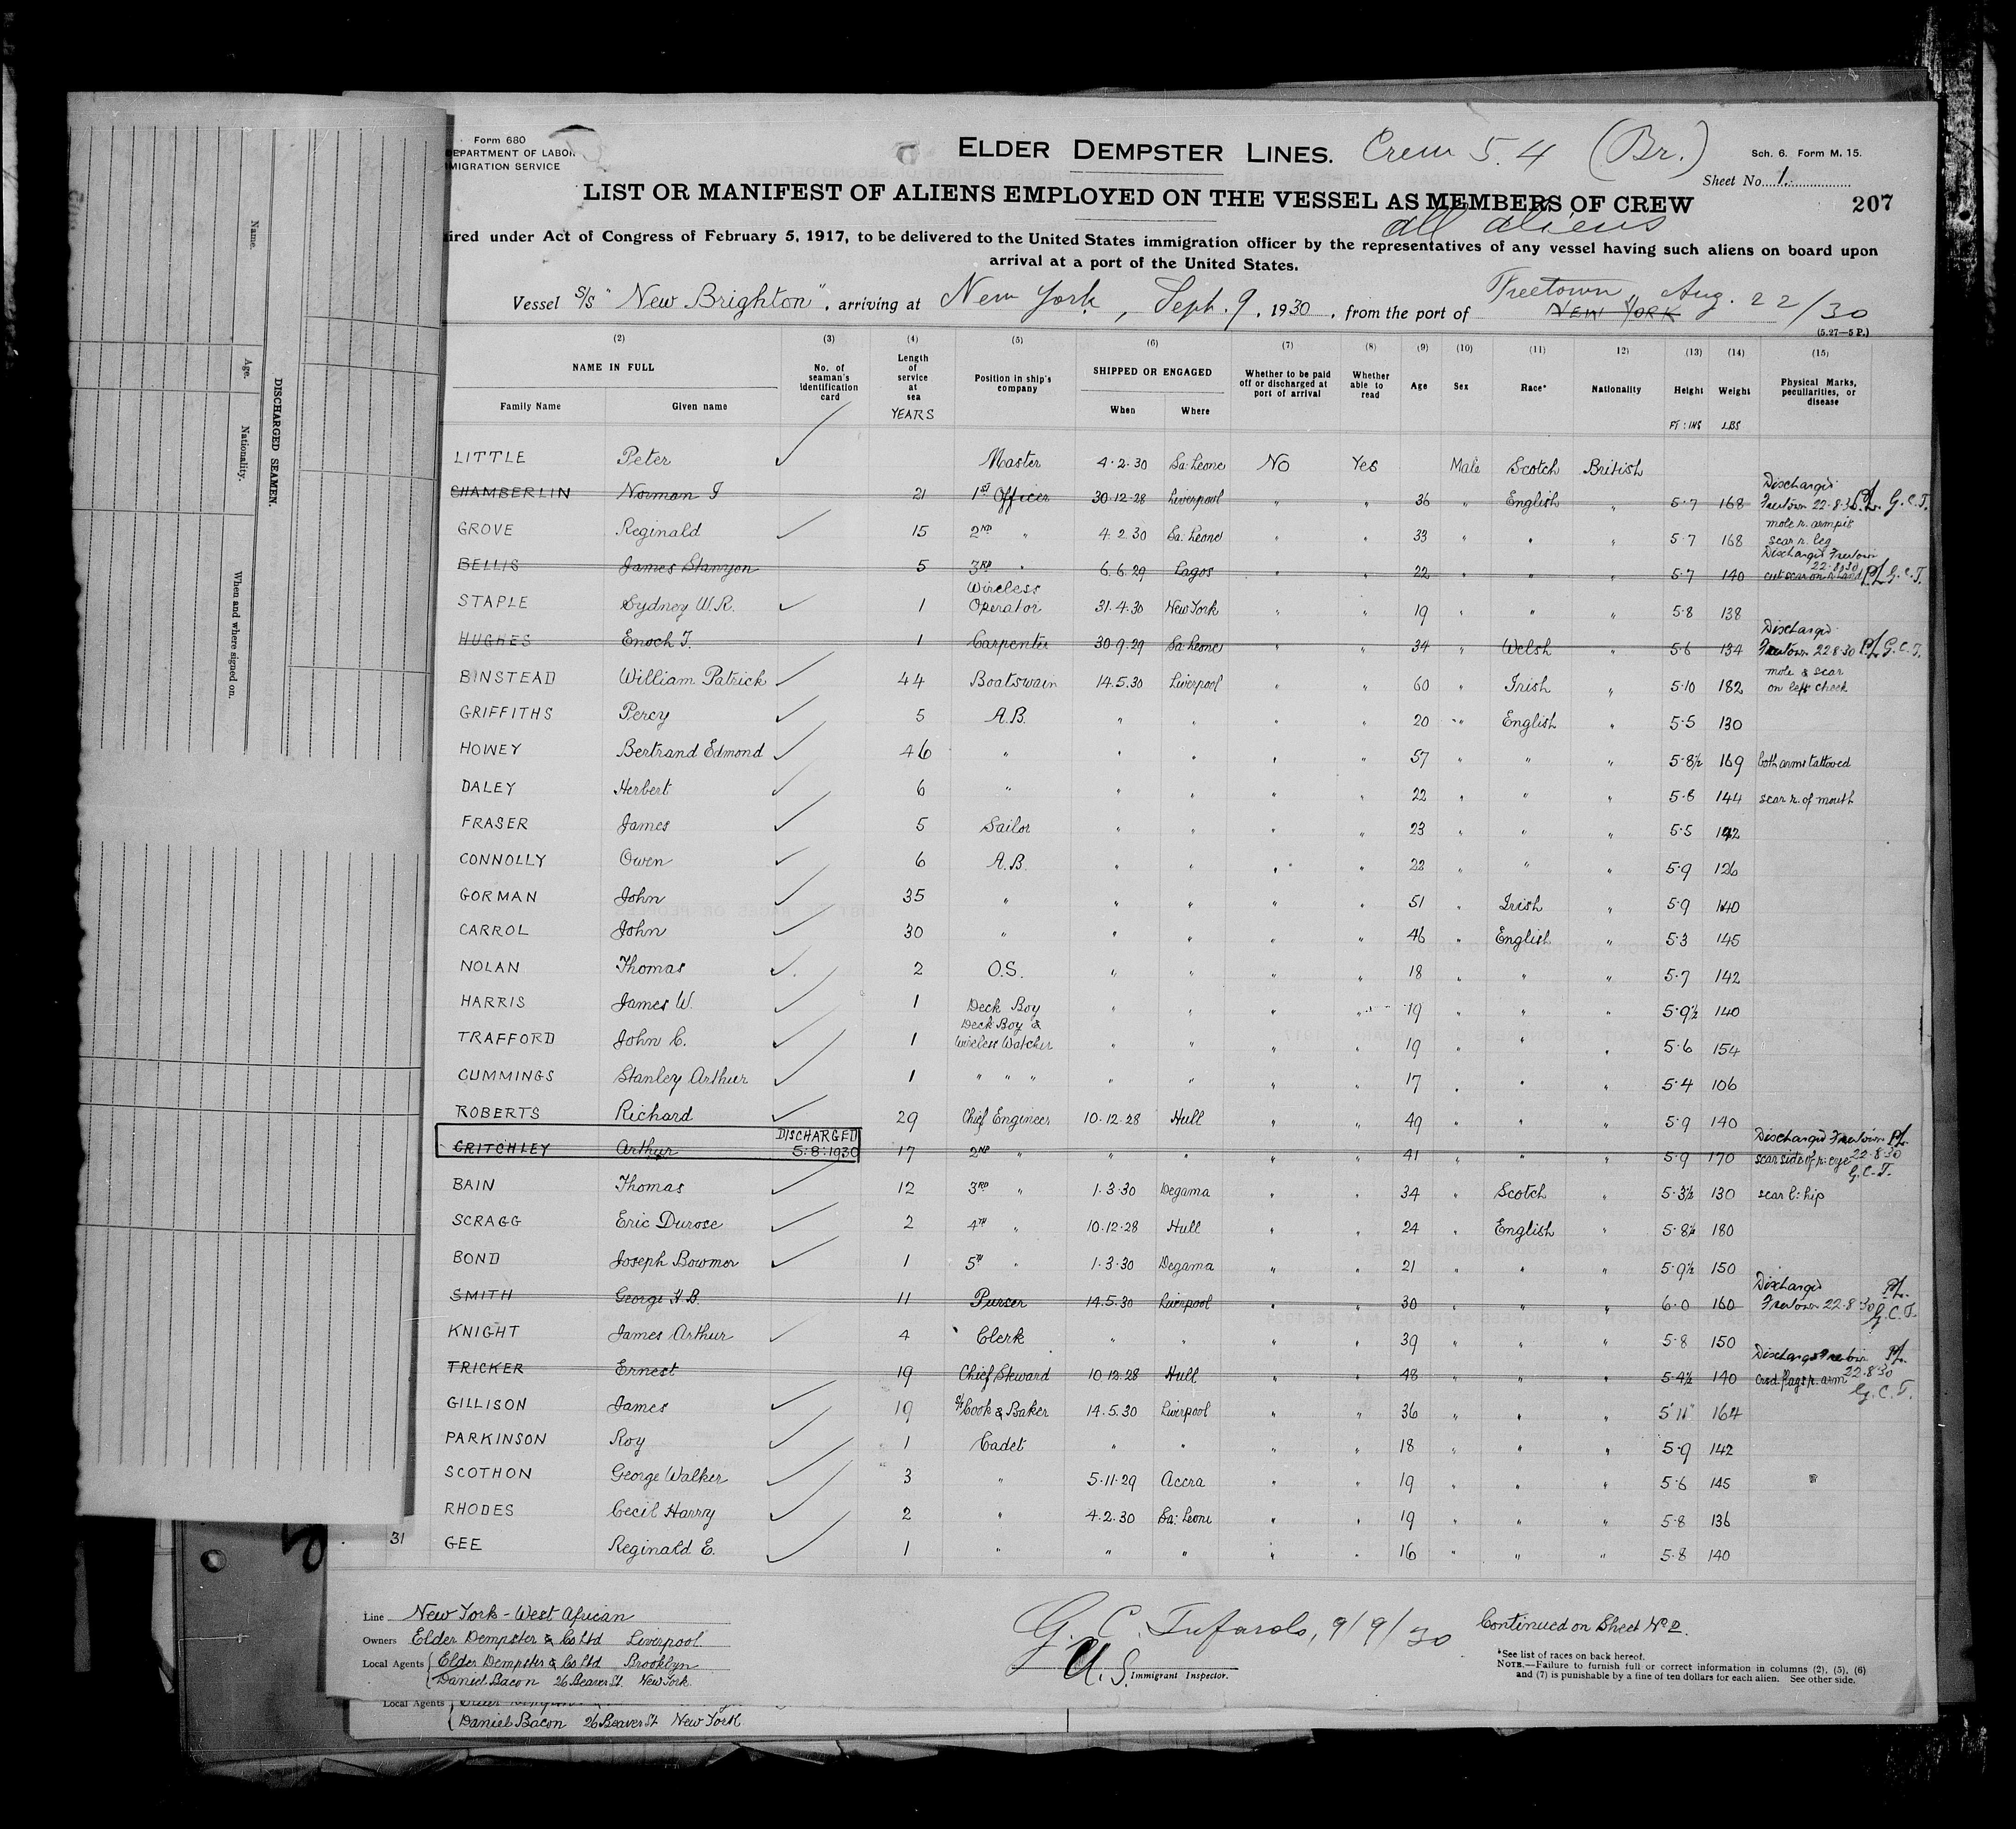 Form 680
DEPARTMENT OF LABOR
MIGRATION SERVICE
ELDER DEMPSTER LINES. Crew 54 (Br.)
Sch. 6. Form M. 15.
Sheet No. 1.
LIST OR MANIFEST OF ALIENS EMPLOYED ON THE VESSEL AS MEMBERS OF CREW
207
all aliens
ired under Act of Congress of February 5, 1917, to be delivered to the United States immigration officer by the representatives of any vessel having such aliens on board upon
arrival at a port of the United States.
Vessel S/S "New Brighton", arriving at New York, Sept. 9, 1930, from the port of Freetown, Aug. 22/30
NEW YORK
(5.27—5 P.)
(2) (3) (4) (5) (6) (7) (8) (9) (10) (11) 12) (13) (14) (15)
NAME IN FULL
Family Name Given name
No. of seaman's identification card
Length of service at sea
YEARS
Position in ship's company
SHIPPED OR ENGAGED
When Where
Whether to be paid off or discharged at port of arrival
Whether able to read
Age Sex Race* Nationality Height Weight
FT : INS LBS
Physical Marks, peculiarities, or disease
LITTLE Peter ✓ Master 4·2·30 Sa: Leone No Yes Male Scotch British
CHAMBERLIN Norman I 21 1ST Officer 30·12·28 Liverpool " " 36 " English " 5·7 168 Discharged Freetown 22·8·30 P.L. G.C.T.
GROVE Reginald ✓ 15 2ND " 4·2·30 Sa: Leone " " 33 " " " 5·7 168 mole r. armpit scar r. leg
BELLIS James Stanyon 5 3RD " 6.6.29 Lagos " " 22 " " " 5·7 140 Discharged Freetown 22·8·30 cut scar on r. hand P.L. G.C.T.
STAPLE Sydney W.R. ✓ 1 Wireless Operator 31.4.30 New York " " 19 " " " 5·8 138
HUGHES Enoch T. 1 Carpenter 30·9·29 Sa: Leone " " 34 " Welsh " 5·6 134 Discharged Freetown 22·8·30 P.L. G.C.T.
BINSTEAD William Patrick ✓ 44 Boatswain 14.5.30 Liverpool " " 60 " Irish " 5·10 182 mole & scar on left cheek
GRIFFITHS Percy ✓ 5 A.B. " " " " 20 " English " 5·5 130
HOWEY Bertrand Edmond ✓ 46 " " " " " 57 " " " 5·8½ 169 both arms tattooed
DALEY Herbert ✓ 6 " " " " " 22 " " " 5·8 144 scar r. of mouth
FRASER James ✓ 5 Sailor " " " " 23 " " " 5·5
CONNOLLY Owen ✓ 6 A.B. " " " " 22 " " " 5·9 126
GORMAN John ✓ 35 " " " " " 51 " Irish " 5·9 140
CARROL John ✓ 30 " " " " " 46 " English " 5·3 145
NOLAN Thomas ✓ 2 O.S. " " " " 18 " " " 5·7 142
HARRIS James W. ✓ 1 Deck Boy " " " " 19 " " " 5·9½ 140
TRAFFORD John C. ✓ 1 Deck Boy & Wireless Watcher " " " " 19 " " " 5·6 154
CUMMINGS Stanley Arthur ✓ 1 " " " " " " " 17 " " " 5·4 106
ROBERTS Richard ✓ 29 Chief Engineer 10·12·28 Hull " " 49 " " " 5·9 140
CRITCHLEY Arthur DISCHARGED 5:8:1930 17 2ND " " " " " 41 " " " 5·9 170 Discharged Freetown P.L. scar side of r: eye 22·8·30 G.C.T.
BAIN Thomas ✓ 12 3RD " 1·3·30 Degama " " 34 " Scotch " 5·3½ 130 scar l: hip
SCRAGG Eric Durose ✓ 2 4TH " 10·12·28 Hull " " 24 " English " 5·8½ 180
BOND Joseph Bowmer ✓ 1 5th " 1·3·30 Degama " " 21 " " " 5·9½ 150
SMITH George H.B. 11 Purser 14.5.30 Liverpool " " 30 " " " 6·0 160 Discharged Freetown 22·8·30 P.L. G.C.T.
KNIGHT James Arthur ✓ 4 Clerk " " " " 39 " " " 5·8 150
TRICKER Ernest 19 Chief Steward 10·12·28 Hull " " 48 " " " 5·4½ 140 Discharged Freetown P.L. crsd flags r. arm 22·8·30 G.C.T.
GILLISON James ✓ 19 Cook & Baker 14.5.30 Liverpool " " 36 " " " 5'11" 164
PARKINSON Roy ✓ 1 Cadet " " " " 18 " " " 5·9 142
SCOTHON George Walker ✓ 3 " 5·11·29 Accra " " 19 " " " 5·6 145
RHODES Cecil Harry ✓ 2 " 4.2.30 Sa: Leone " " 19 " " " 5·8 136
31 GEE Reginald E. ✓ 1 " " " " " 16 " " " 5·8 140
Line New York - West African
Owners Elder Dempster & Co Ltd Liverpool.
Local Agents { Elder Dempster & Co Ltd Brooklyn
Daniel Bacon 26 Beaver St. New York
G. C. Tufarolo, 9/9/30
U.S. Immigrant Inspector.
Continued on Sheet No 2.
*See list of races on back hereof.
NOTE.—Failure to furnish full or correct information in columns (2), (5), (6)
and (7) is punishable by a fine of ten dollars for each alien. See other side.
Local Agents
Daniel Bacon 26 Beaver St New York
DISCHARGED SEAMEN.
Name. Age. Nationality. When and where signed on.